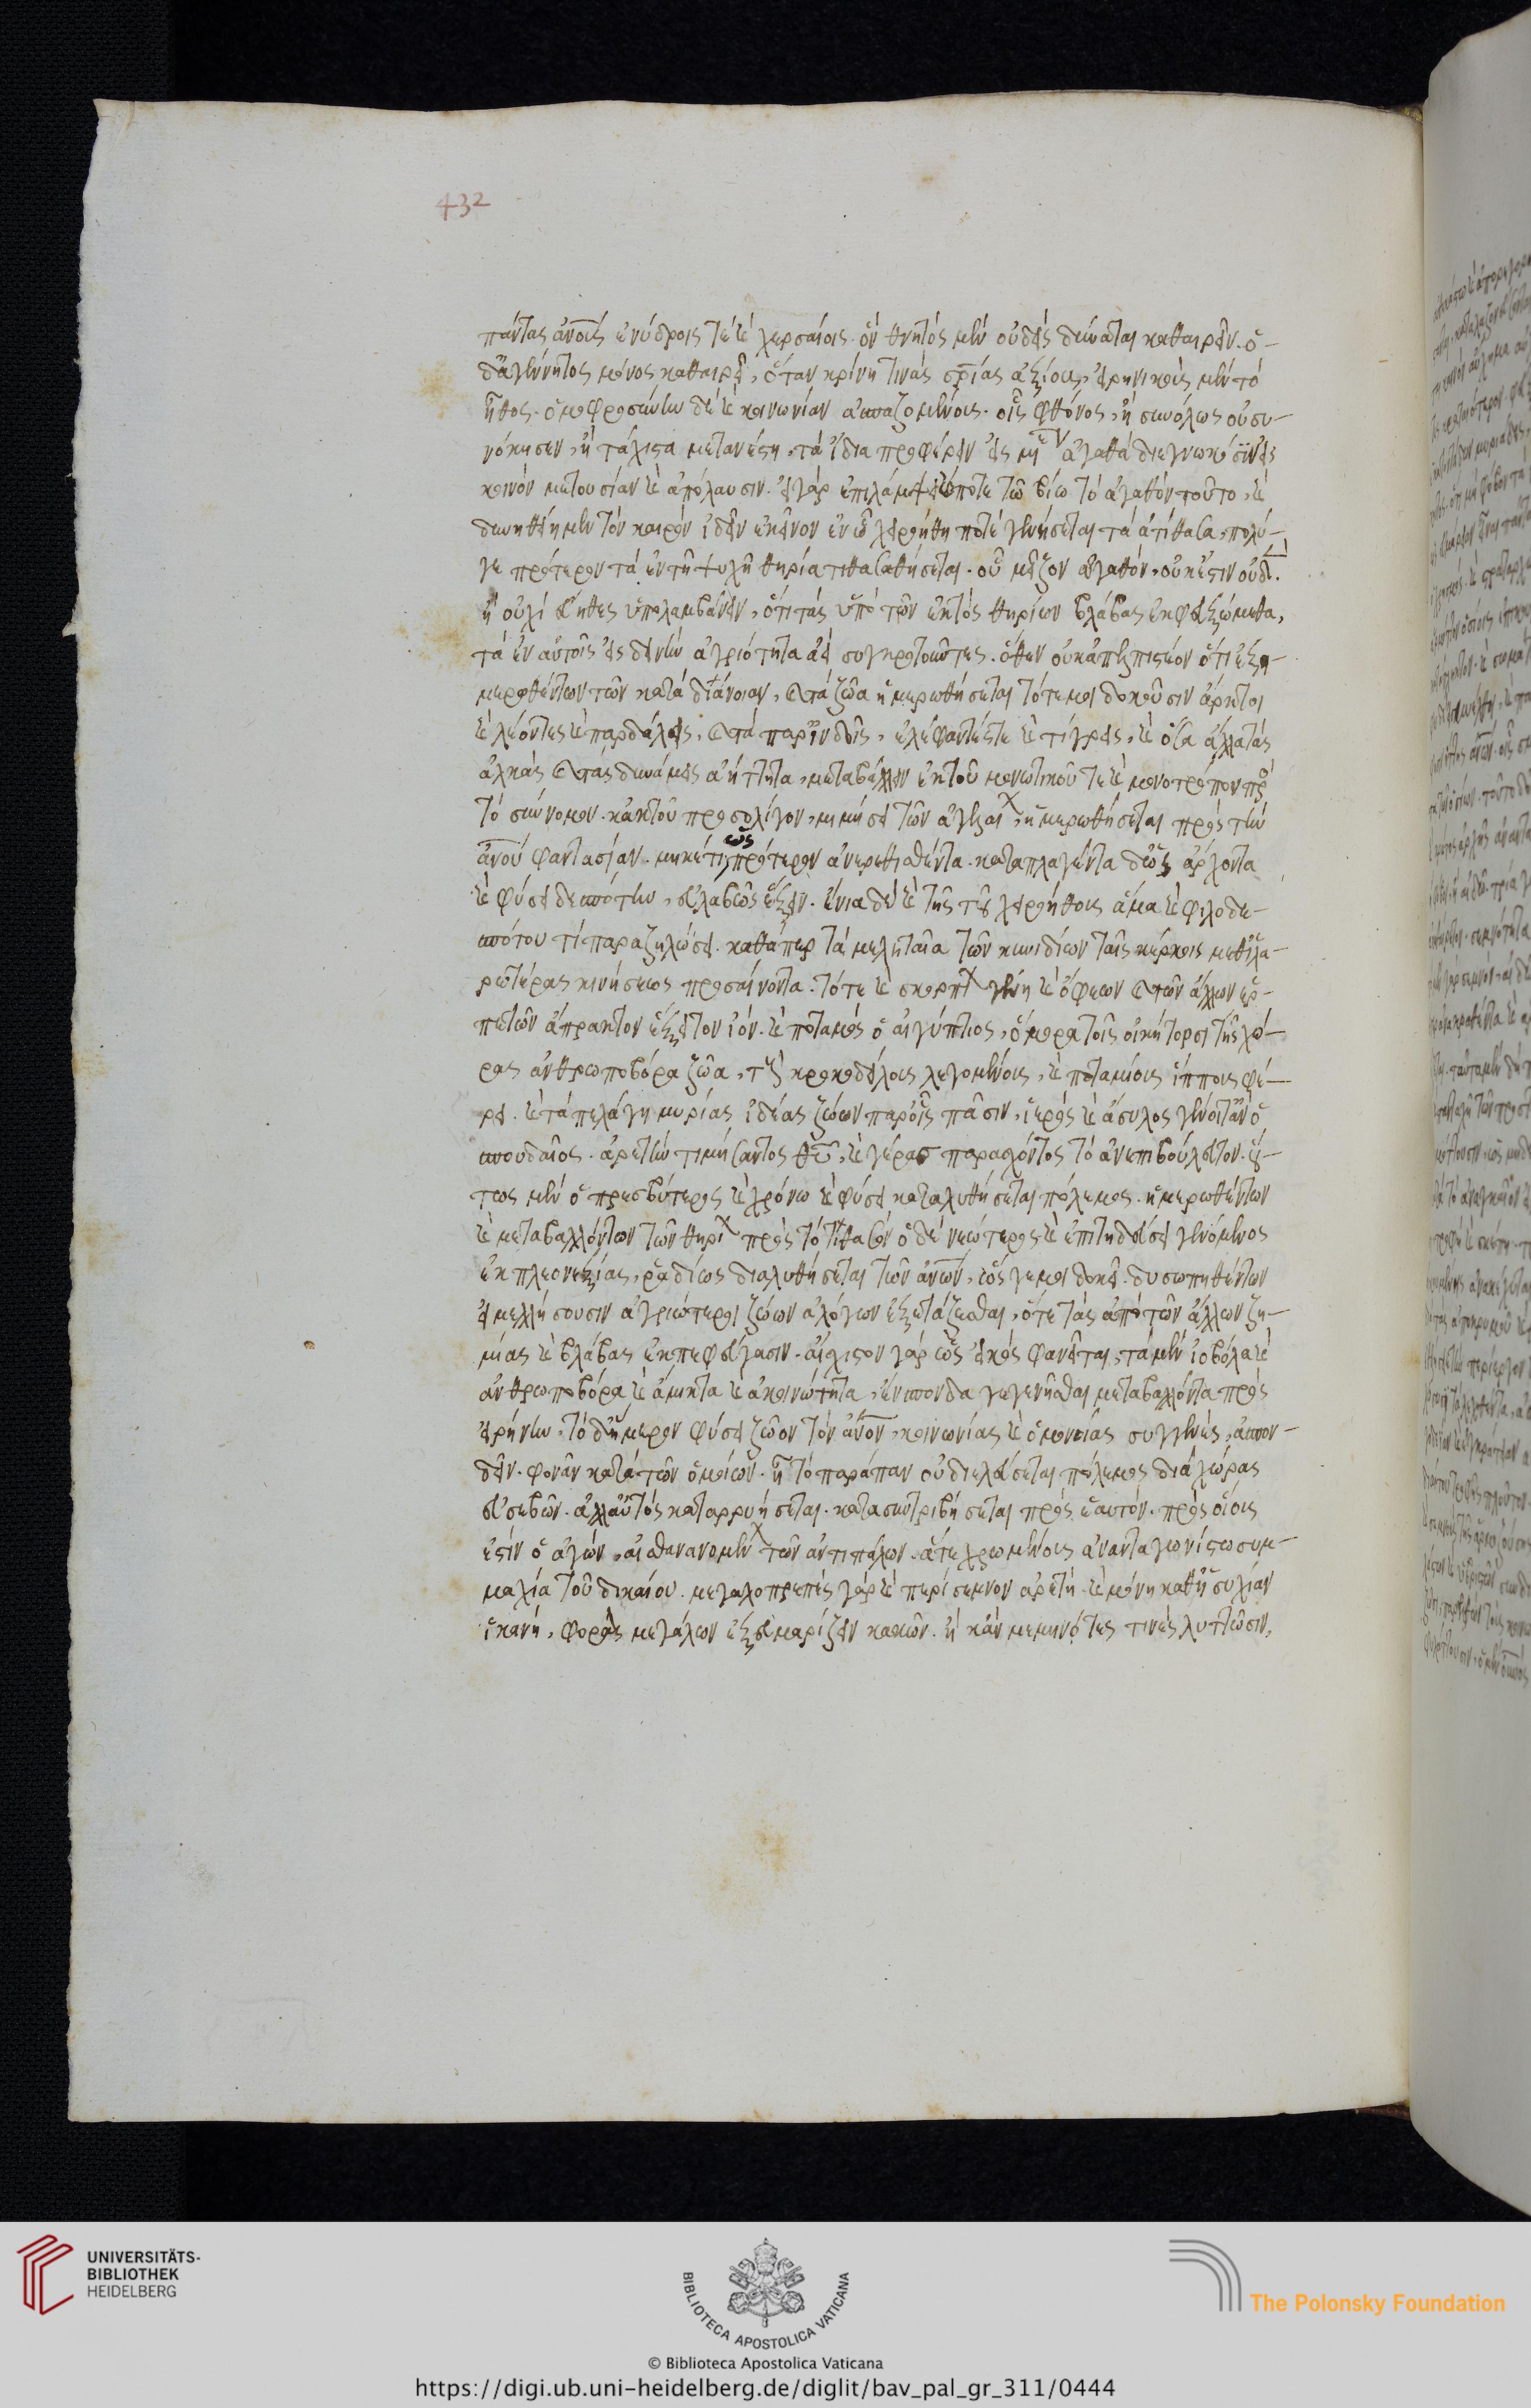 432
πάντας ἀνοις ἐνύδροις τὲ καὶ χερσαίοις. ὃν θνητὸς μὲν οὐδεὶς δύναται καθαιρεῖν. ὁ-
δἀγέννητος μόνος καθαιρεῖ, ὅταν κρίνη τινὰς σριας ἀξίους, εἰρηνικοὺς μὲν τὸ
ἦθος. ὁμοφροσύνην δὲ καὶ κοινωνίαν ἀσπαζομένους. οἷς φθόνος, ἢ συνόλως οὐ συ-
νώκησεν, ἢ τάχιστα μετανέστη, τὰ ἴδια προφέρειν εἰς ἀγαθὰ διεγνωκόσιν εἰς
κοινὸν μετουσίαν καὶ ἀπόλαυσιν. εἰ γὰρ ἐπιλάμψειέ ποτε τῶ βίω τὸ ἀγαθὸν τοῦτο, καὶ
δυνηθείημεν τὸν καιρὸν ἰδεῖν ἐκεῖνον ἐν ὧ χειροήθη ποτὲ γενήσεται τὰ ἀτίθασα, πολύ-
γε πρότερον τὰ ἐν τῇ ψυχῇ θηρία τιθασαθήσεται. οὗ μεῖζον ἀγαθὸν, οὐκ ἔστιν οὐδὲ.
ἢ οὐχὶ εὔηθες ὑπολαμβάνειν, ὅτι τὰς ὑπὸ τῶν ἐκτὸς θηρίων βλάβας ἐκφευξώμεθα,
τὰ ἐν αὐτοῖς εἰς δεινὴν ἀγριότητα ἀεὶ συγκροτοῦντες. ὅθεν οὐκ ἀπελπιστέον ὅτι ἐξη-
μερωθέντων τῶν κατὰ διάνοιαν, καὶ τὰ ζῶα ἡμερωθήσεται τότε μοι δοκοῦσιν ἄρκτοι
καὶ λέοντες καὶ παρδάλεις, καὶ τὰ παρ ἰνδοῖς, ἐλέφαντές τε καὶ τίγρεις, καὶ ὅσα ἄλλα τὰς
ἀλκὰς καὶ τὰς δυνάμεις ἀήττητα, μεταβάλλειν ἐκ τοῦ μονωτικοῦ τε καὶ μονοτρόπου πρὸς
τὸ σύννομον. κἀκ τοῦ προσολίγον, μιμήσει τῶν ἀγελαίων, ἡμερωθήσεται πρὸς τὴν
ἀνοῦ φαντασίαν. μηκέτι ὡς πρότερον ἀνερεθισθέντα. καταπλαγέντα δὡς ἄρχοντα
καὶ φύσει δεσπότην, εὐλαβῶς ἕξειν. ἔνια δὲ καὶ τῆς τοῦ χειροήθους ἅμα καὶ φιλοδε-
σπότου τι παραζηλώσει. καθάπερ τὰ μελιταῖα τῶν κυνιδίων ταῖς κέρκοις μεθἱλα-
ρωτέρας κινήσεως προσαίνοντα. τότε καὶ σκορπίων γένη καὶ ὄφεων καὶ τῶν ἄλλων ἑρ-
πετῶν ἄπρακτον ἕξει τὸν ἰόν. καὶ ποταμὸς ὁ αἰγύπτιος, ὅμορα τοῖς οἰκήτορσι τῆς χώ-
ρας ἀνθρωποβόρα ζῶα, τοῖς κροκοδείλοις λεγομένοις, καὶ ποταμίοις ἵπποις φέ-
ρει. καὶ τὰ πελάγη μυρίας ἰδέας ζώων παρ οἷς πᾶσιν, ἱερὸς καὶ ἄσυλος γένοιτἂν ὁ
σπουδαῖος. ἀρετὴν τιμήσαντος θεοῦ, καὶ γέρας παρασχόντος τὸ ἀνεπιβούλευτον. οὕ-
τως μὲν ὁ πρεσβύτερος καὶ χρόνω καὶ φύσει καταλυθήσεται πόλεμος. ἡμερωθέντων
καὶ μεταβαλλόντων τῶν θηρίων πρὸς τὸ τιθασὸν ὁ δὲ νεώτερος καὶ ἐπιτηδεύσει γενόμενος
ἐκ πλεονεξίας, ῥαδίως διαλυθήσεται τῶν ἀνων, ὥς γε μοι δοκεῖ. δυσωπηθέντων
εἰ μελλήσουσιν ἀγριώτεροι ζώων ἀλόγων ἐξετάζεσθαι, ὅτε τὰς ἀπὸ τῶν ἄλλων ζη-
μίας καὶ βλάβας ἐκπεφεύγασιν. αἴσχιστον γὰρ ὡς εἰκὸς φανεῖται, τὰ μὲν ἰοβόλα καὶ
ἀνθρωποβόρα καὶ ἄμικτα καὶ ἀκοινώτητα, ἔνσπονδα γεγενῆσθαι μεταβαλλόντα πρὸς
εἰρήνην, τὸ δἥμερον φύσει ζῶον τὸν ἀνον, κοινωνίας καὶ ὁμονοίας συγγενὲς, ἀσπον-
δεῖν. φονᾶν κατὰ τῶν ὁμοίων. ἢ τὸ παράπαν οὐ διελεύσεται πόλεμος διὰ χώρας
εὐσεβῶν. ἀλλαὐτὸς καταρρυήσεται. κατασυντριβήσεται πρὸς ἑαυτόν. πρὸς οἵους
ἐστὶν ὁ ἀγών, αἰσθανανομένων τῶν ἀντιπάλων. ἅτε χρωμένοις ἀνανταγωνίστω συμ-
μαχία τοῦ δικαίου. μεγαλοπρεπὲς γὰρ καὶ περίσεμνον ἀρετὴ. καὶ μόνη καθἡσυχίαν
ἱκανὴ, φορὰς μεγάλων ἐξευμαρίζειν κακῶν. ἢ κἂν μεμηνότες τινὲς λυττῶσιν,
UNIVERSITÄTS-
BIBLIOTHEK
HEIDELBERG
BIBLIOTECA APOSTOLICA VATICANA
The Polonsky Foundation
© Biblioteca Apostolica Vaticana
https://digi.ub.uni-heidelberg.de/diglit/bav_pal_gr_311/0444